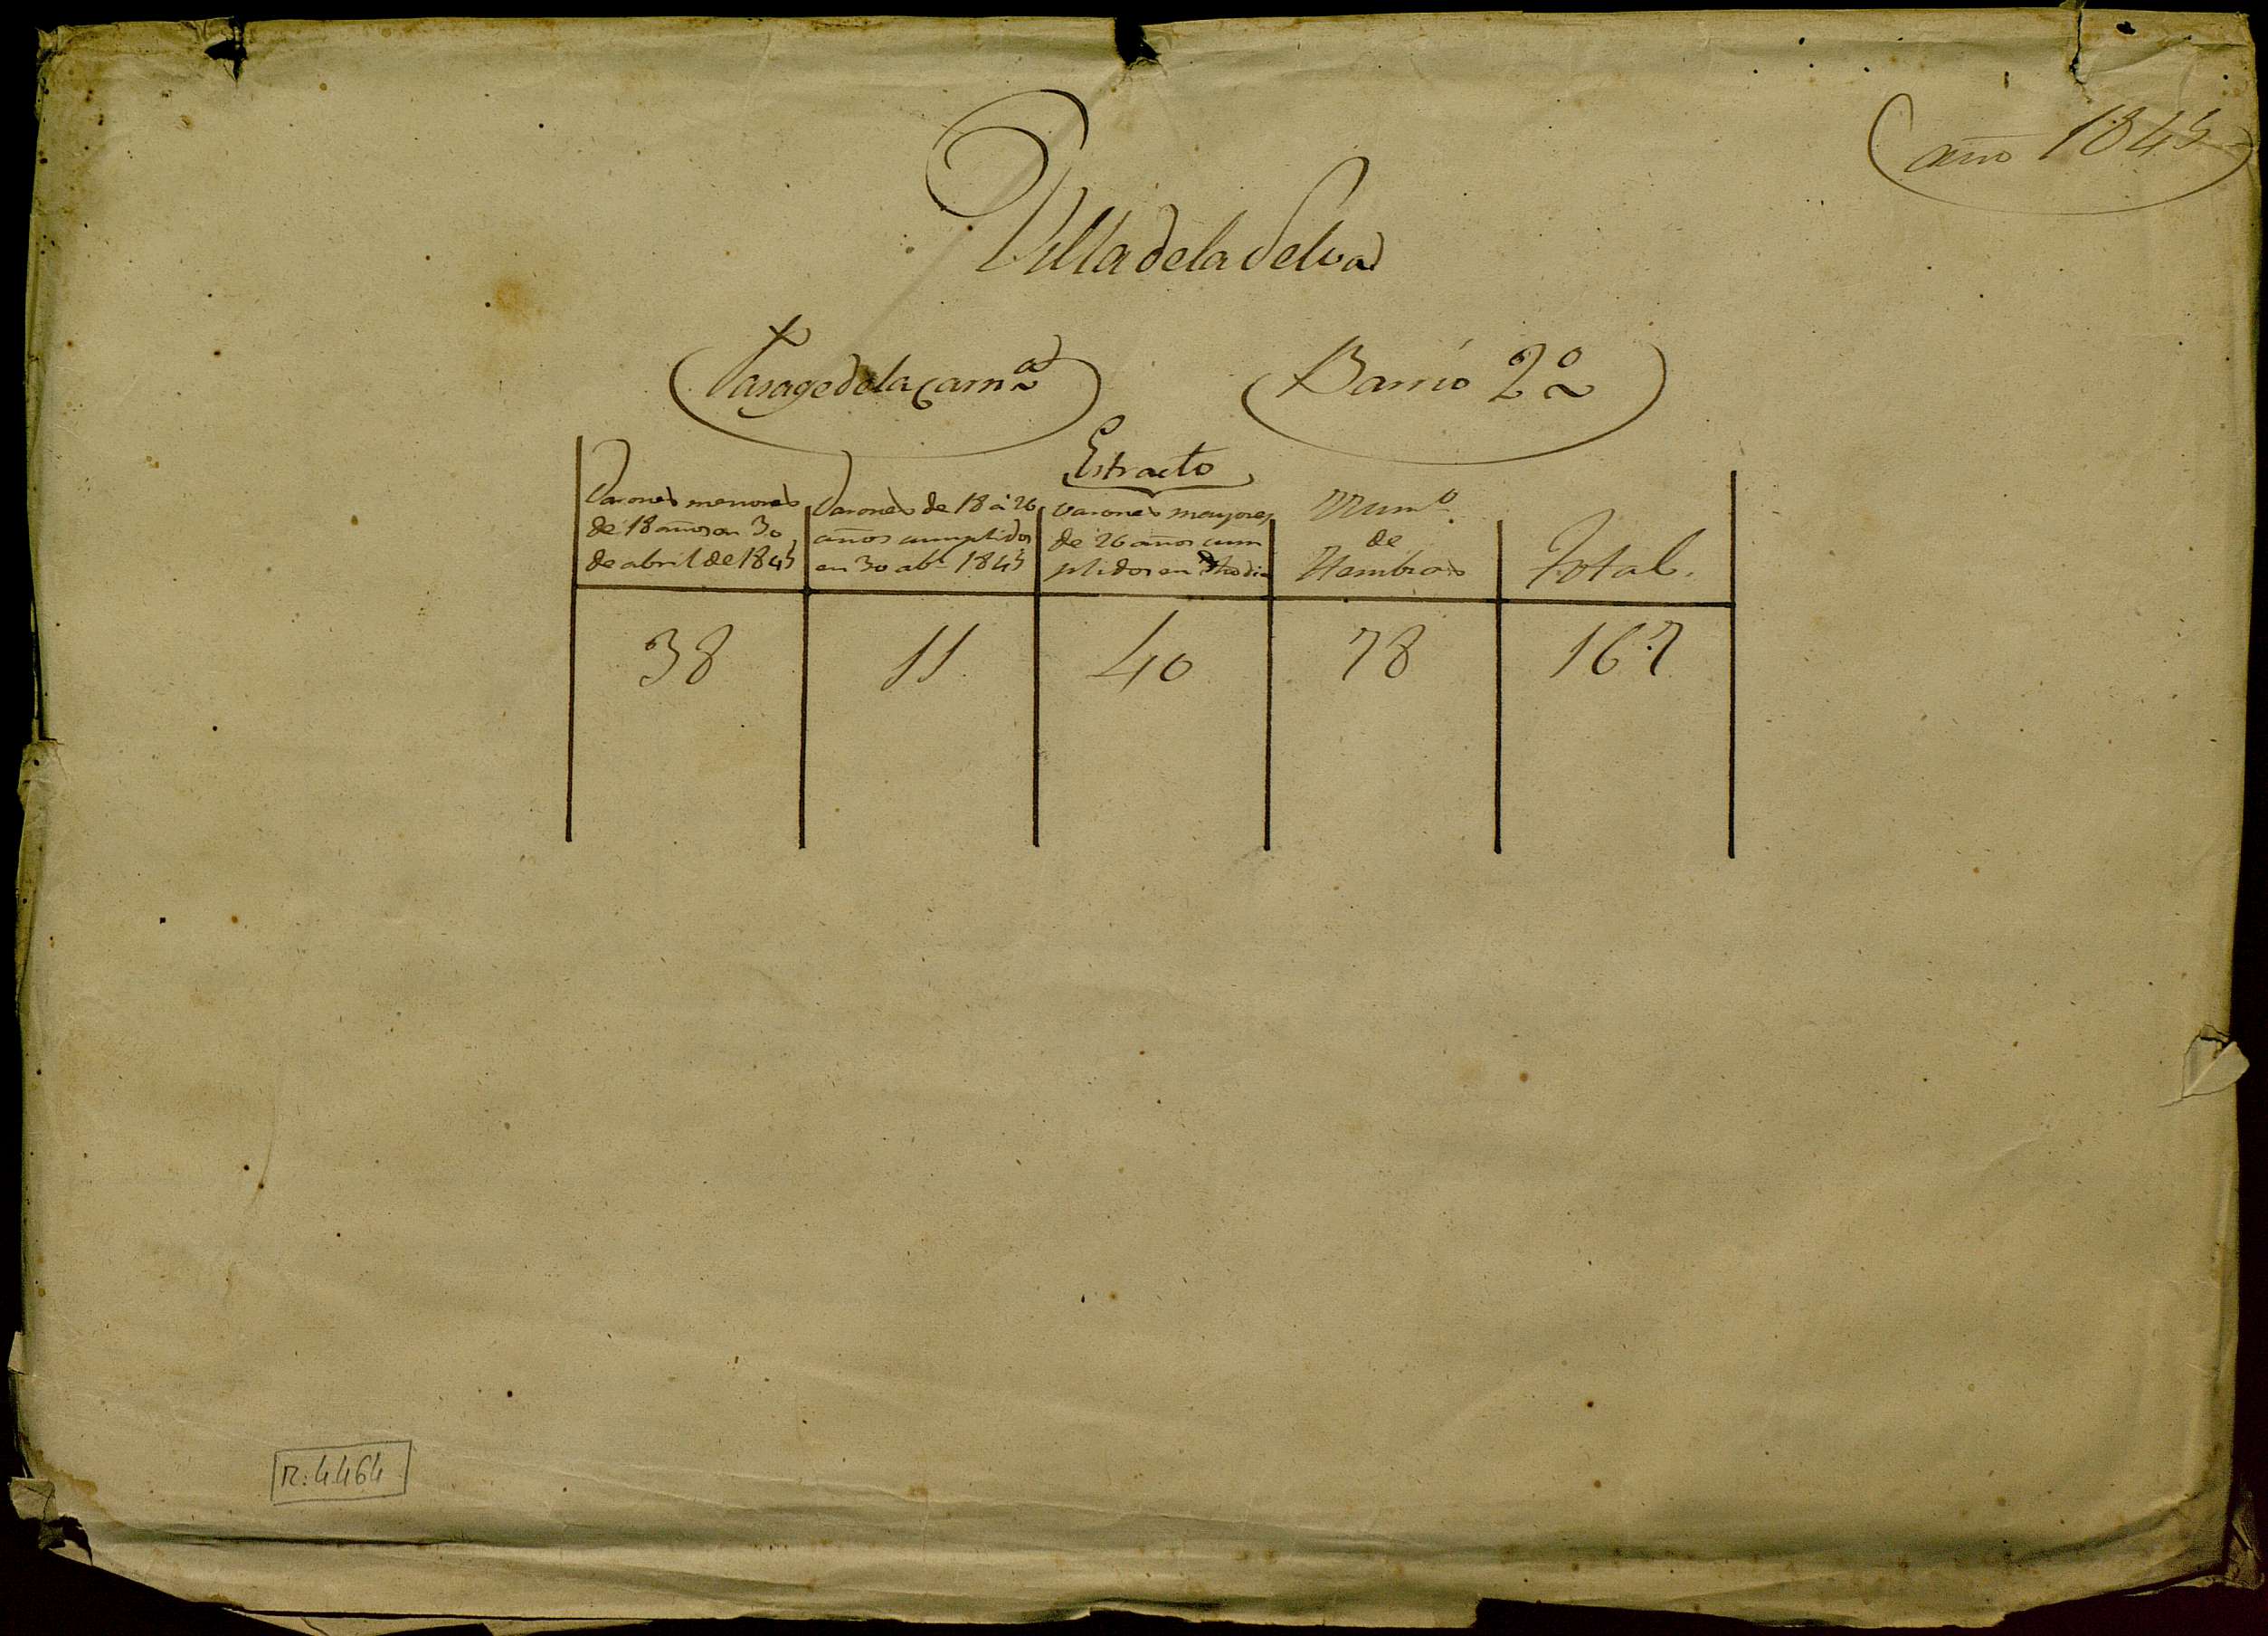 año 1845
Villa de la Selva
Pasage de la Carn.ª
Barrio 2º
Estracto
Varones menores
de 18 años en 30
de abril de 1845
Varones de 18 á 26
años cumplidos
en 30 ab.l 1845
varones mayores
de 26 años cum
plidos en dho dia
Num.º
de
Hembras
Total.
38
11
40
78
167
R: 4464